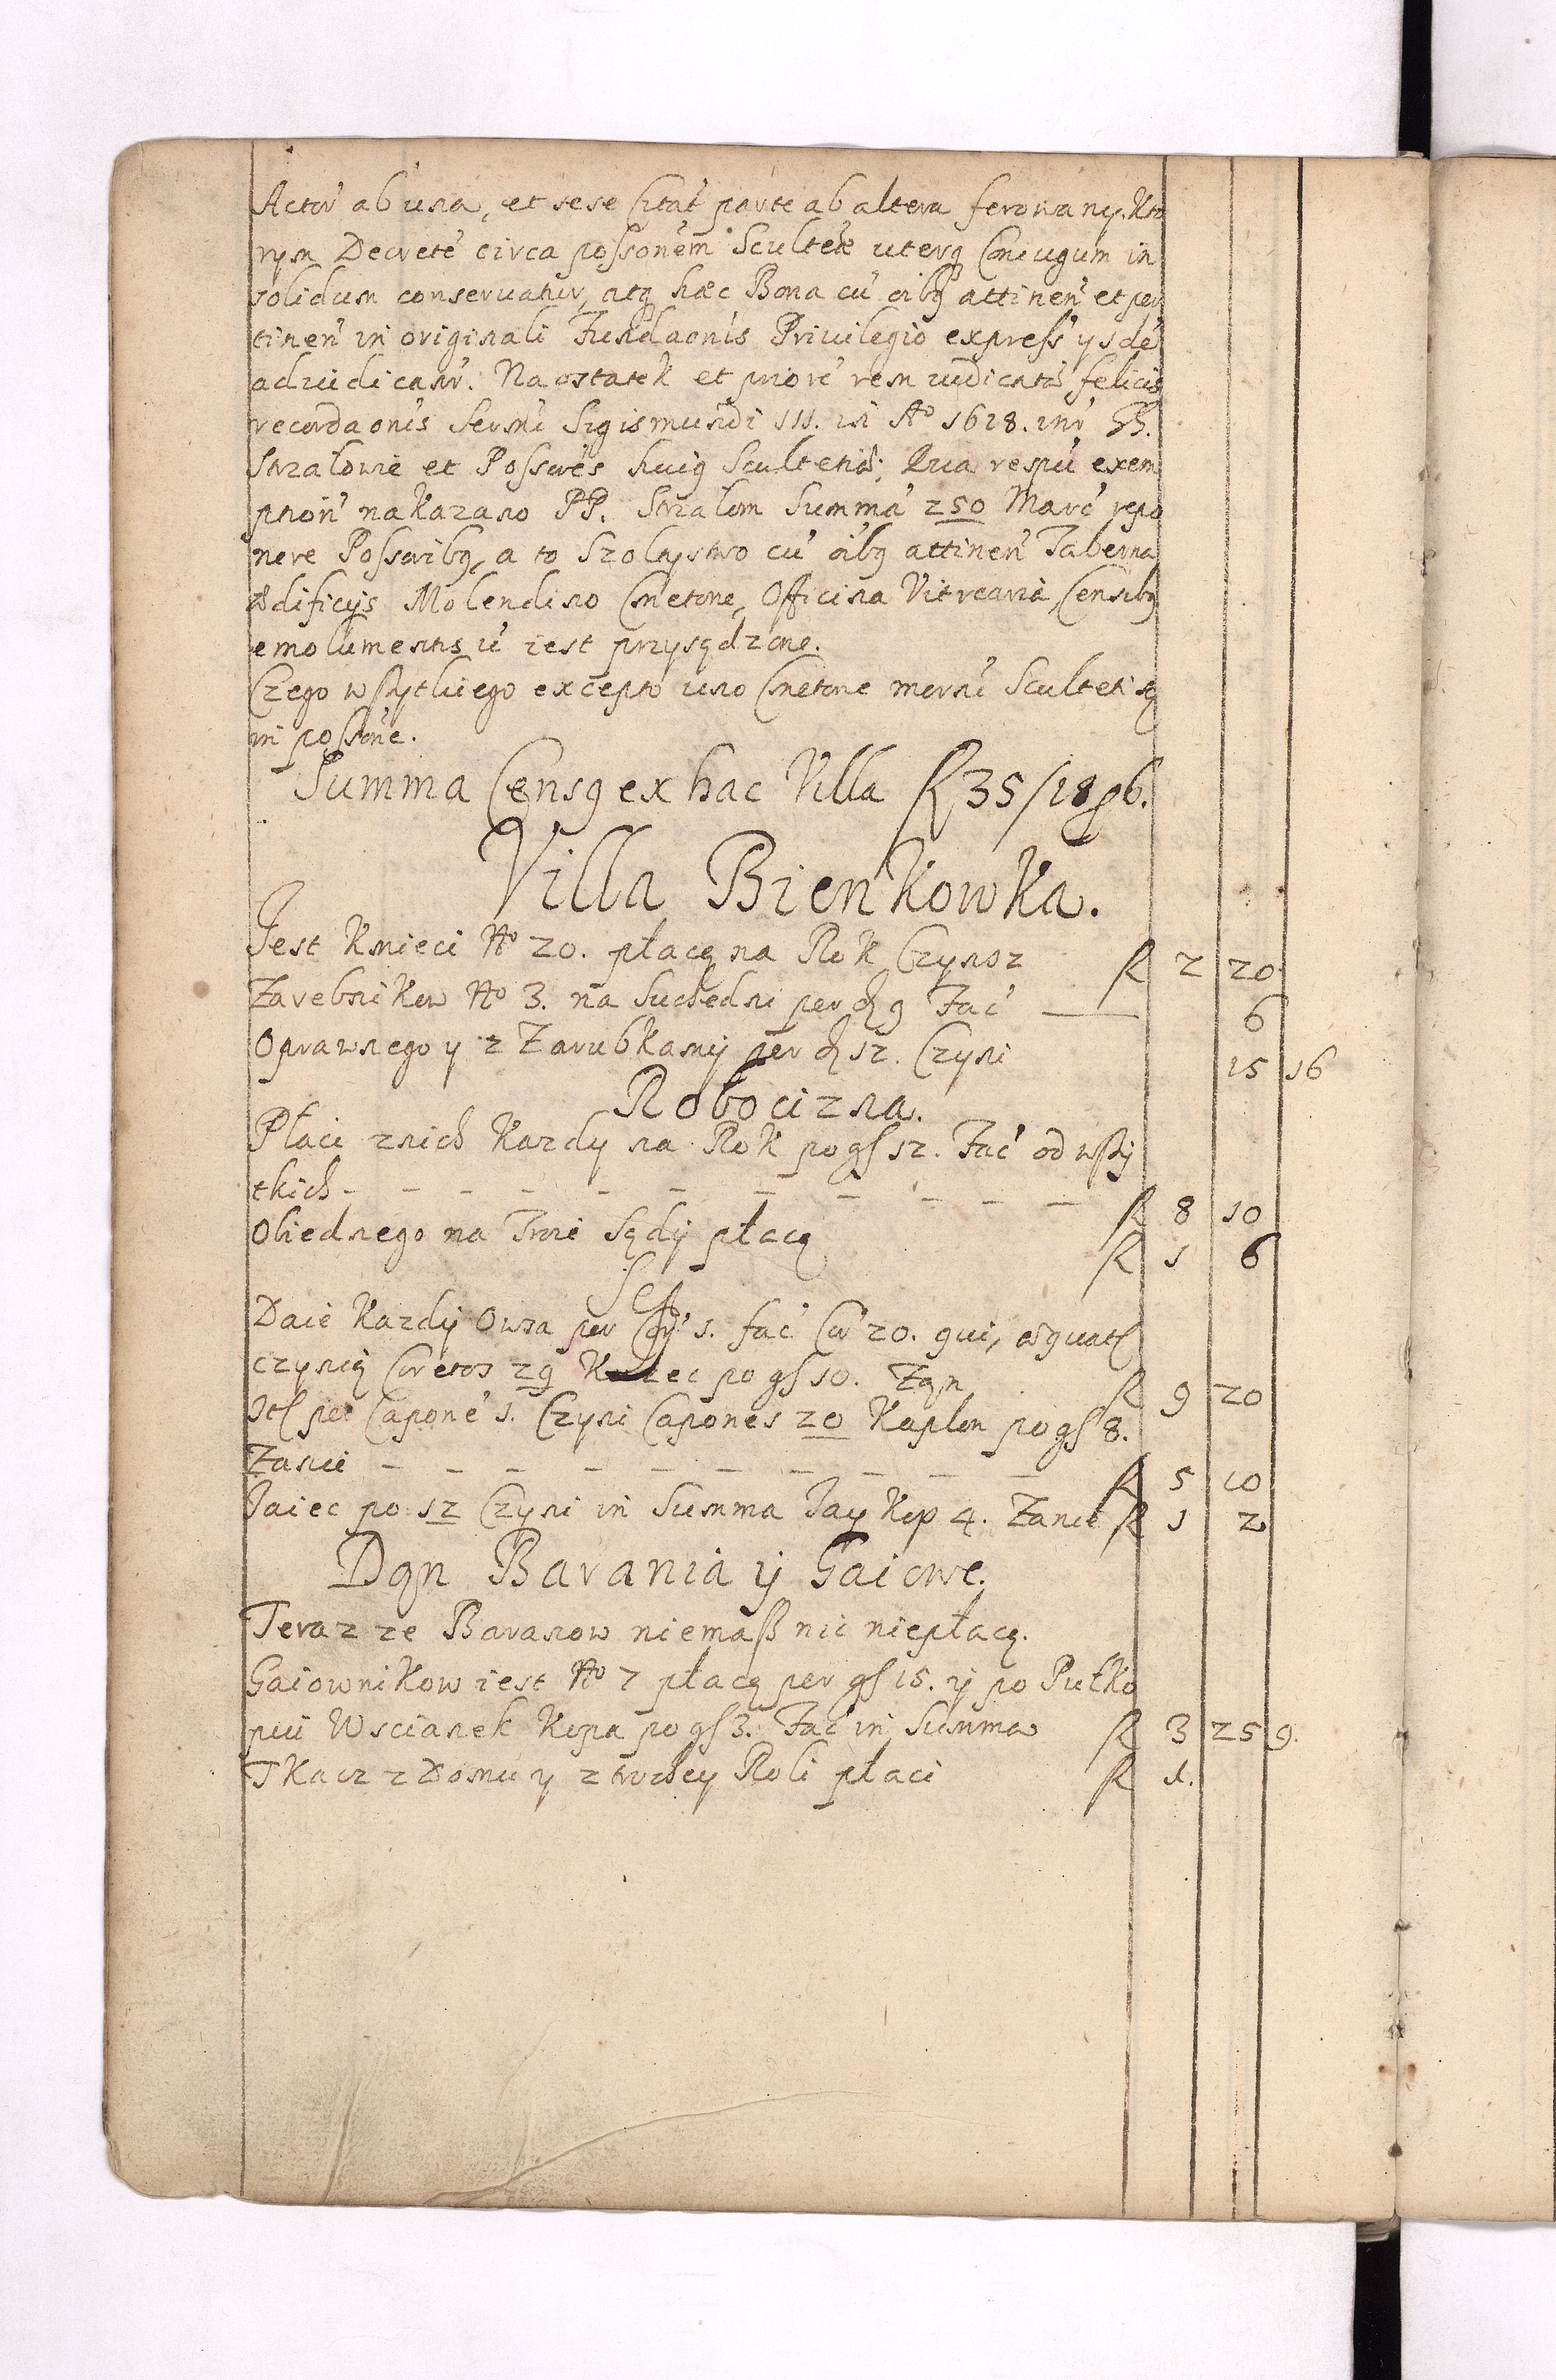 Actor ab una, et sese Citat parte ab altera ferowany. Kto
rym Decrete circa possonem Scultetiæ uterq Coniugum in
solidum conservatur, atq hæc Bona cu oibq attinen et per
tinen in originali Fundaonis Privilegio express ysde
adiudicanr. Na ostatek et priore rem iudicata felicis
recordaonis Sermi Sigismundi III. in Aº 1618. inr GG.
Strzalowie et Possores huiq Scultetiæ; Qua respu exem
ption nakazano PP. Strzalom Summa 250 Marc repo
nere Possoribq, a to Szoltystwo cu oibq attinen Taberna
Ædificijs Molendino Cmetone, Officina Vitrearia Censibq
emolumentis u iest przysądzone.
Czego wszytkiego excepto uno Cmetone morni Sculteti są
in possone.
Summa Censq ex hac Villa R 35/18 ꝑ 6.
Villa Bienkowka.
Jest Kmieci Nº 20. płacą na Rok Czynsz R 2 20
Zarebnikow Nº 3. na Suchedni per q 9 Fac 6
Oprawnego y z Zarubkamij per q 12. Czyni 15 16
Robocizna.
Płaci znich Kazdy na Rok po gſ 12. Fac od wszy
tkich - - - - - - - - - - - R 8 10
Obiednego na Troie Sądy płacą R 1 6
Sep
Daie Kazdy Owsa per 1. fac Cor 20. qui, æquatſ
czynią Coretos 29 Korzec po gſ 10. Zqn R 9 20
Itſ per Capone 1. Czyni Capones 20 Kaplon po gſ 8.
Zanue - - - - - - - - - - R 5 10
Jaiec po 12 Czyni in Summa Jay Kop 4. Zanue R 1 2
Dqn Barania y Gaiowe.
Teraz ze Baranow niemasz nic niepłacą.
Gaiownikow iest Nº 7 płacą per gſ 15. y po Pułko
piu Wscianek Kopa po gſ 3. Fac in Summa R 3 25 9.
Tkacz z Domu y z trochey Roli płaci R 1.